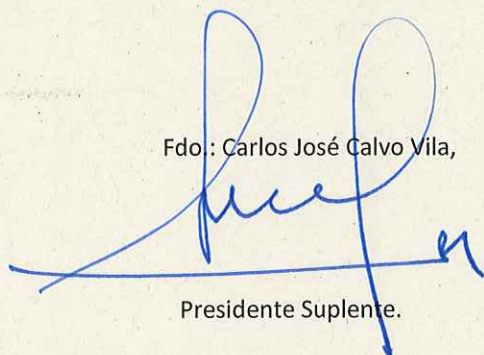 Fdo.: Carlos José Calvo Vila,
Presidente Suplente.